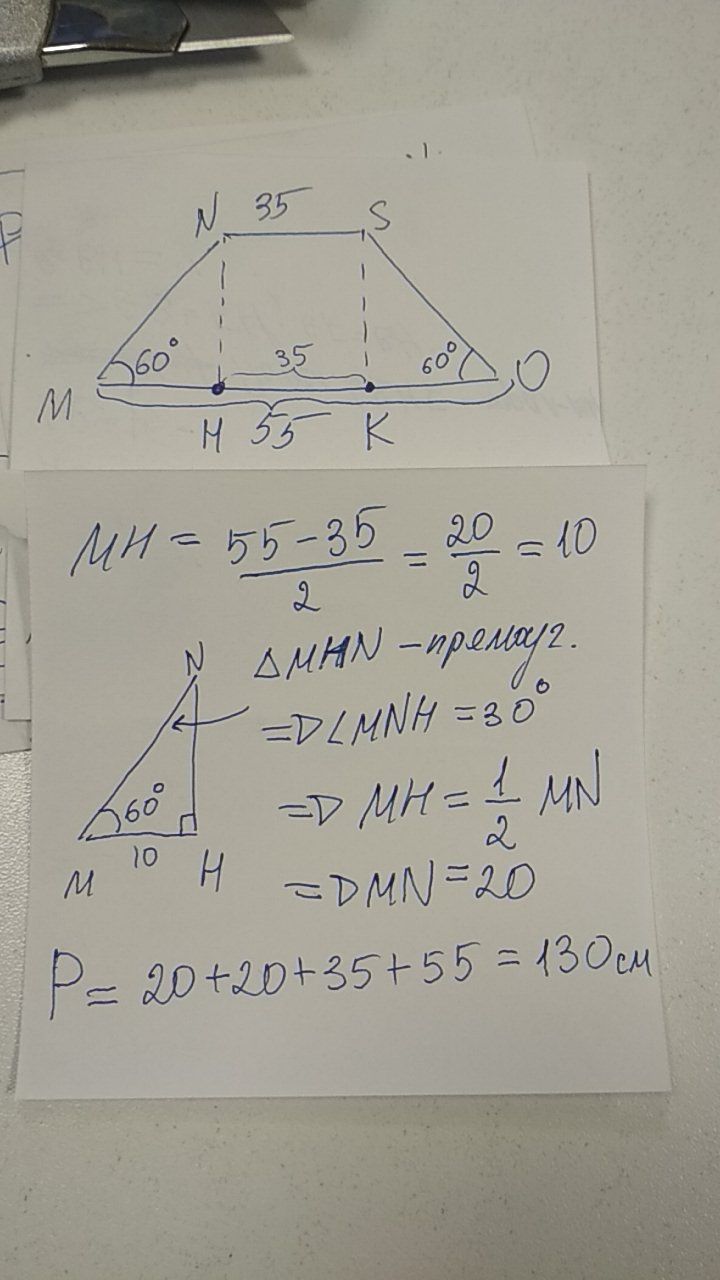 N 35 S
60° 35 60°
M O
H 55 K
MH = 55-35/2 = 20/2 = 10
N
△MHN – прямоуг.
=> ∠MNH = 30°
60°
=> MH = 1/2 MN
10
M H
=> MN = 20
P = 20+20+35+55 = 130 см